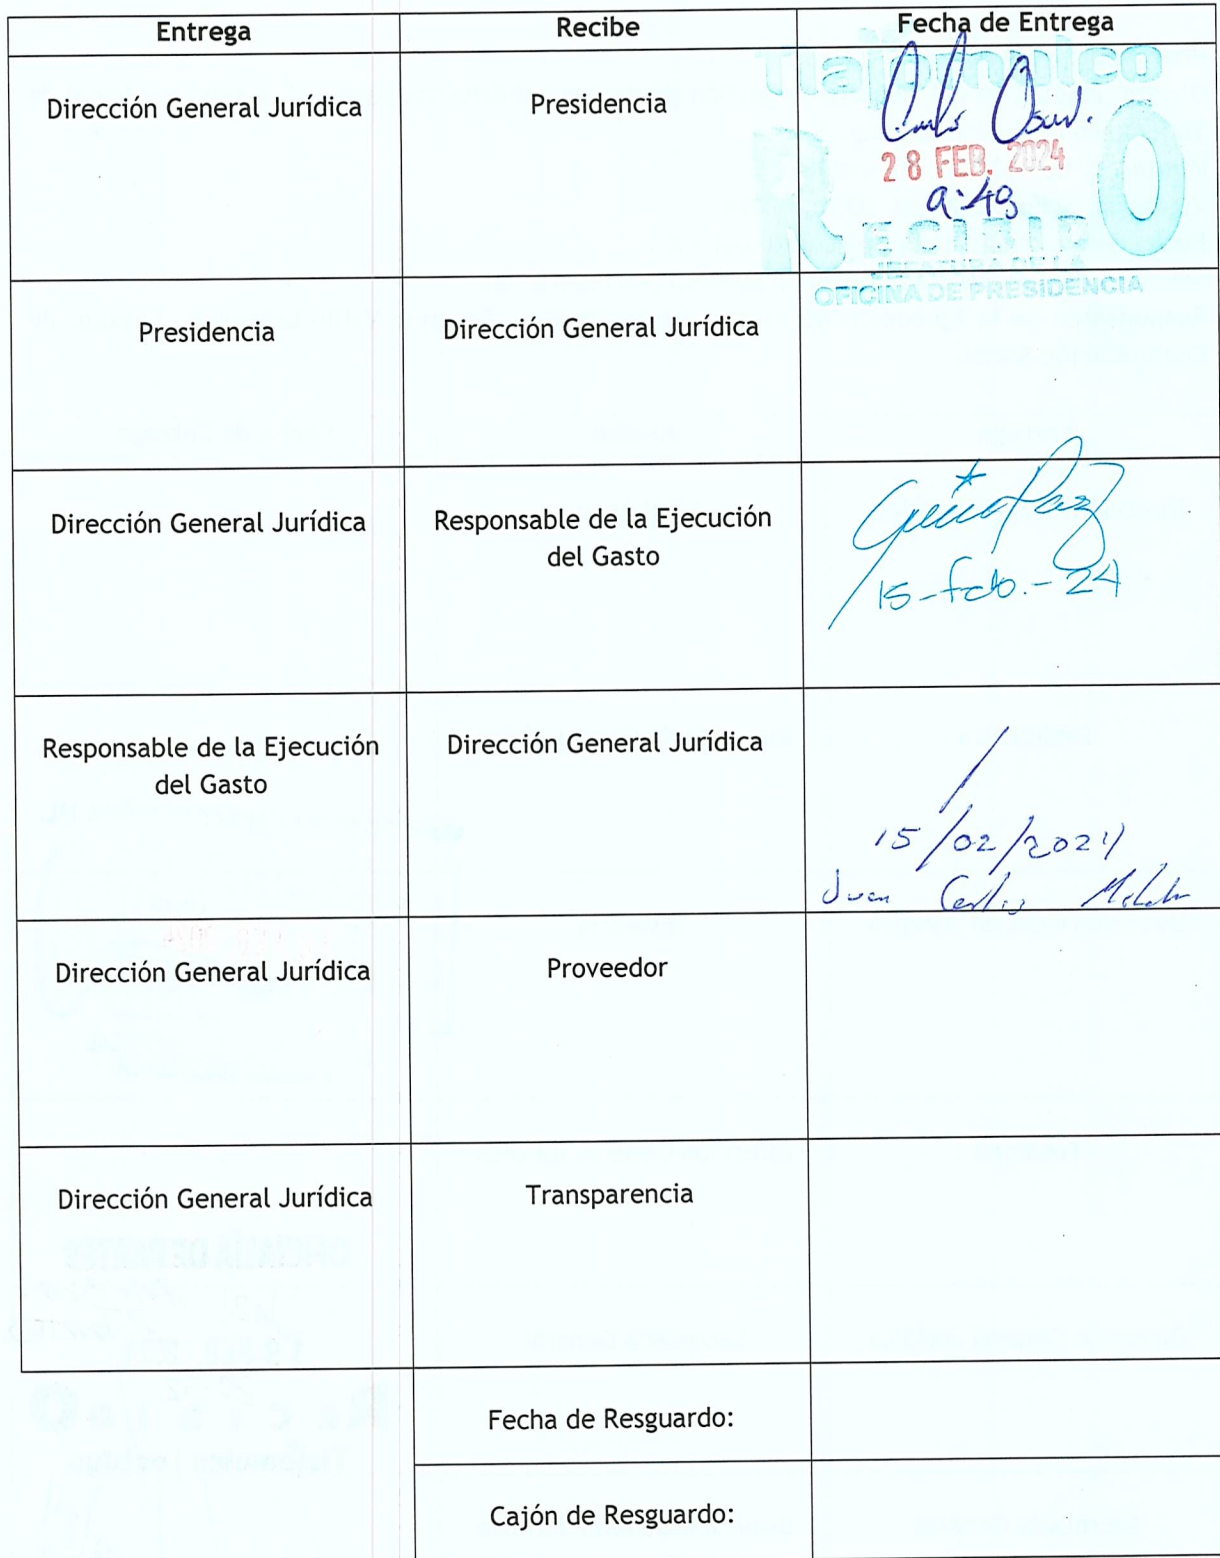 Entrega
Recibe
Fecha de Entrega
Dirección General Jurídica
Presidencia
Tlajomulco
28 FEB. 2024
9:49
RECIBIDO
JEFATURA DE LA
OFICINA DE PRESIDENCIA
Presidencia
Dirección General Jurídica
Dirección General Jurídica
Responsable de la Ejecución
del Gasto
15-feb.-24
Responsable de la Ejecución
del Gasto
Dirección General Jurídica
15/02/2024
Juan Carlos
Dirección General Jurídica
Proveedor
Dirección General Jurídica
Transparencia
Fecha de Resguardo:
Cajón de Resguardo: